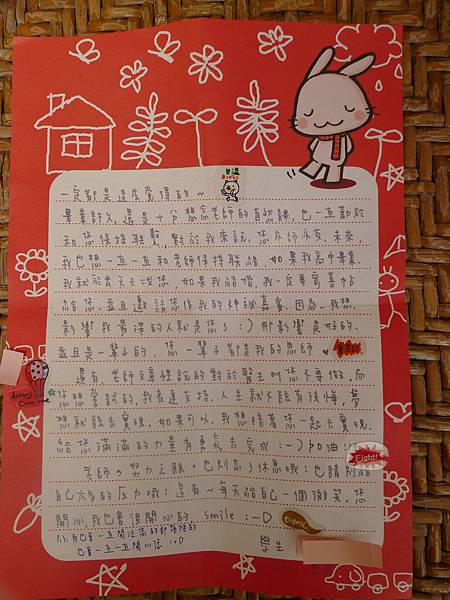 一定都是這麼覺得的~
畢業許久，還是十分想念老師的自然課，也一直勤於
和您保持聯繫，對於我來說，您亦師亦友，未來，
我也想一直一直和老師保持聯絡，如果我高中畢業，
我就能天天找您，如果我結婚，我一定寄喜帖
給您，並且邀請您作我的神秘嘉賓，因為，我想，
影響我最深的人就是您了:) 那影響是好的，
並且是一輩子的，您一輩子都是我的恩師
還有，老師文章裡說的對於醫生叫您不要做，而
您想嘗試的，我看還支持，人生就不該有後悔，夢
想就該去實現，如果可以，我想陪著您一起去實現，
給您滿滿的力量有勇氣去完成:-) 加油
老師，努力之餘，也別忘了休息哦！也請別給
自己太多的壓力哦！還有~每天給自己一個微笑，您
開心，我也會很開心的。smile :-D
P.S. 我也會一直關注您的部落格的
也會一直一直關心您 :-D
學生
Fight!